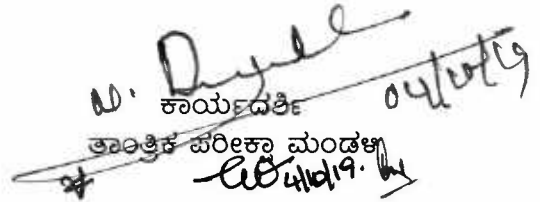 04/10/19
ಕಾರ್ಯದರ್ಶಿ
ತಾಂತ್ರಿಕ ಪರೀಕ್ಷಾ ಮಂಡಳಿ
4/10/19.